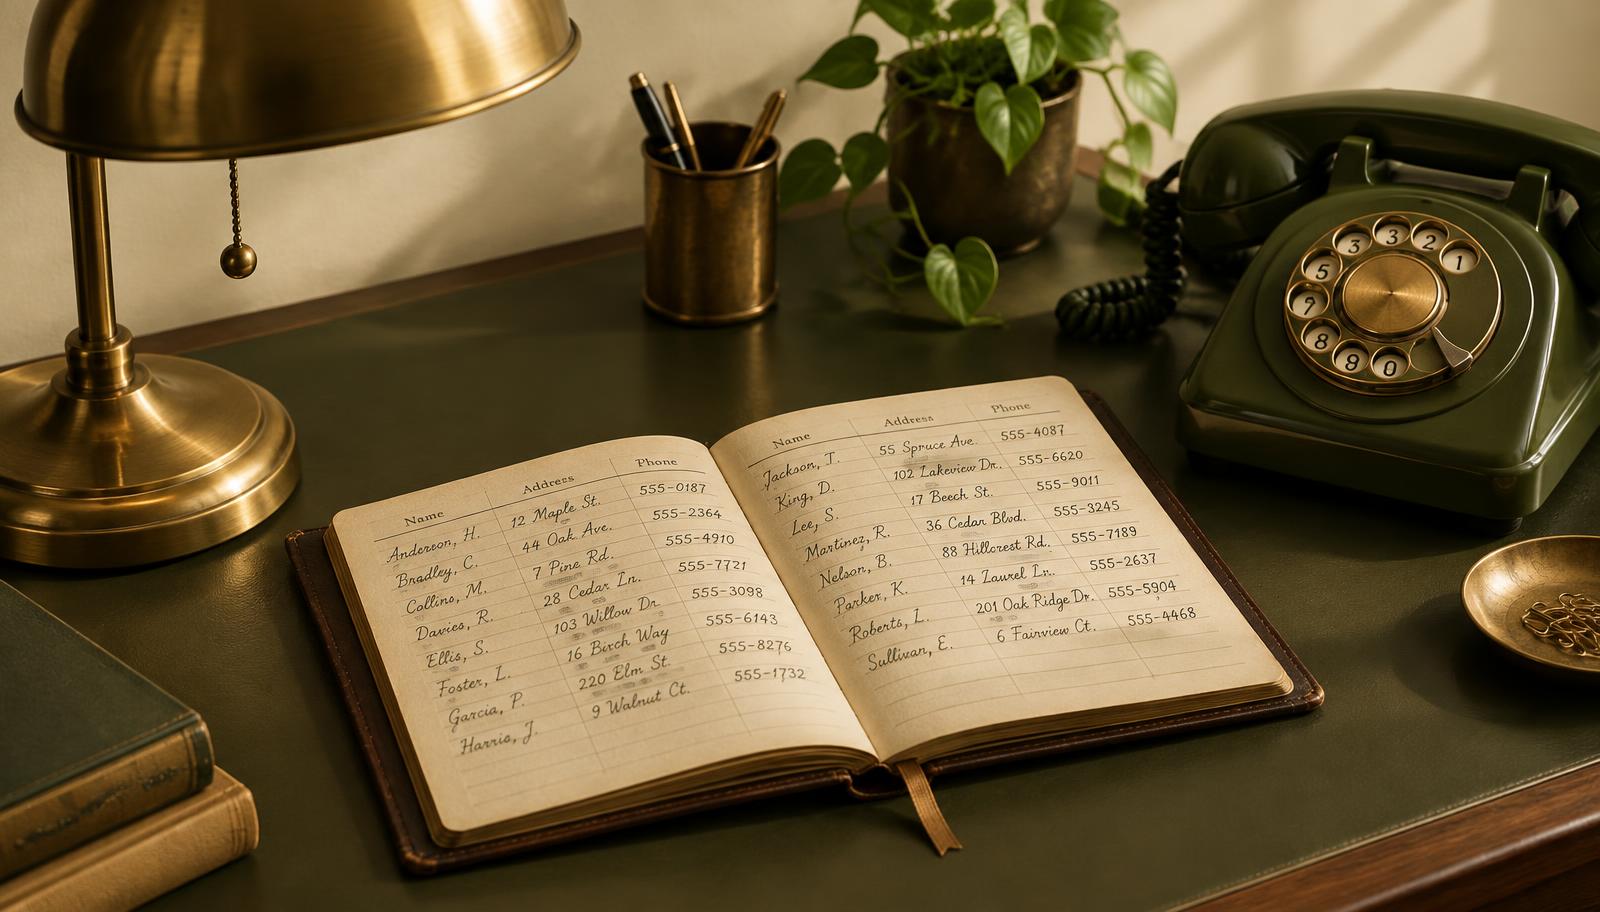 Name Address Phone
Anderson, H. 12 Maple St. 555-0187
Bradley, C. 44 Oak Ave. 555-2364
Collins, M. 7 Pine Rd. 555-4910
Davies, R. 28 Cedar Ln. 555-7721
Ellis, S. 103 Willow Dr. 555-3098
Foster, L. 16 Birch Way 555-6143
Garcia, P. 220 Elm St. 555-8276
Harris, J. 9 Walnut Ct. 555-1732
Name Address Phone
Jackson, T. 55 Spruce Ave. 555-4087
King, D. 102 Lakeview Dr. 555-6620
Lee, S. 17 Beech St. 555-9011
Martinez, R. 36 Cedar Blvd. 555-3245
Nelson, B. 88 Hillcrest Rd. 555-7189
Parker, K. 14 Laurel Ln. 555-2637
Roberts, L. 201 Oak Ridge Dr. 555-5904
Sullivan, E. 6 Fairview Ct. 555-4468
1
2
3
3
5
7
8
8
0